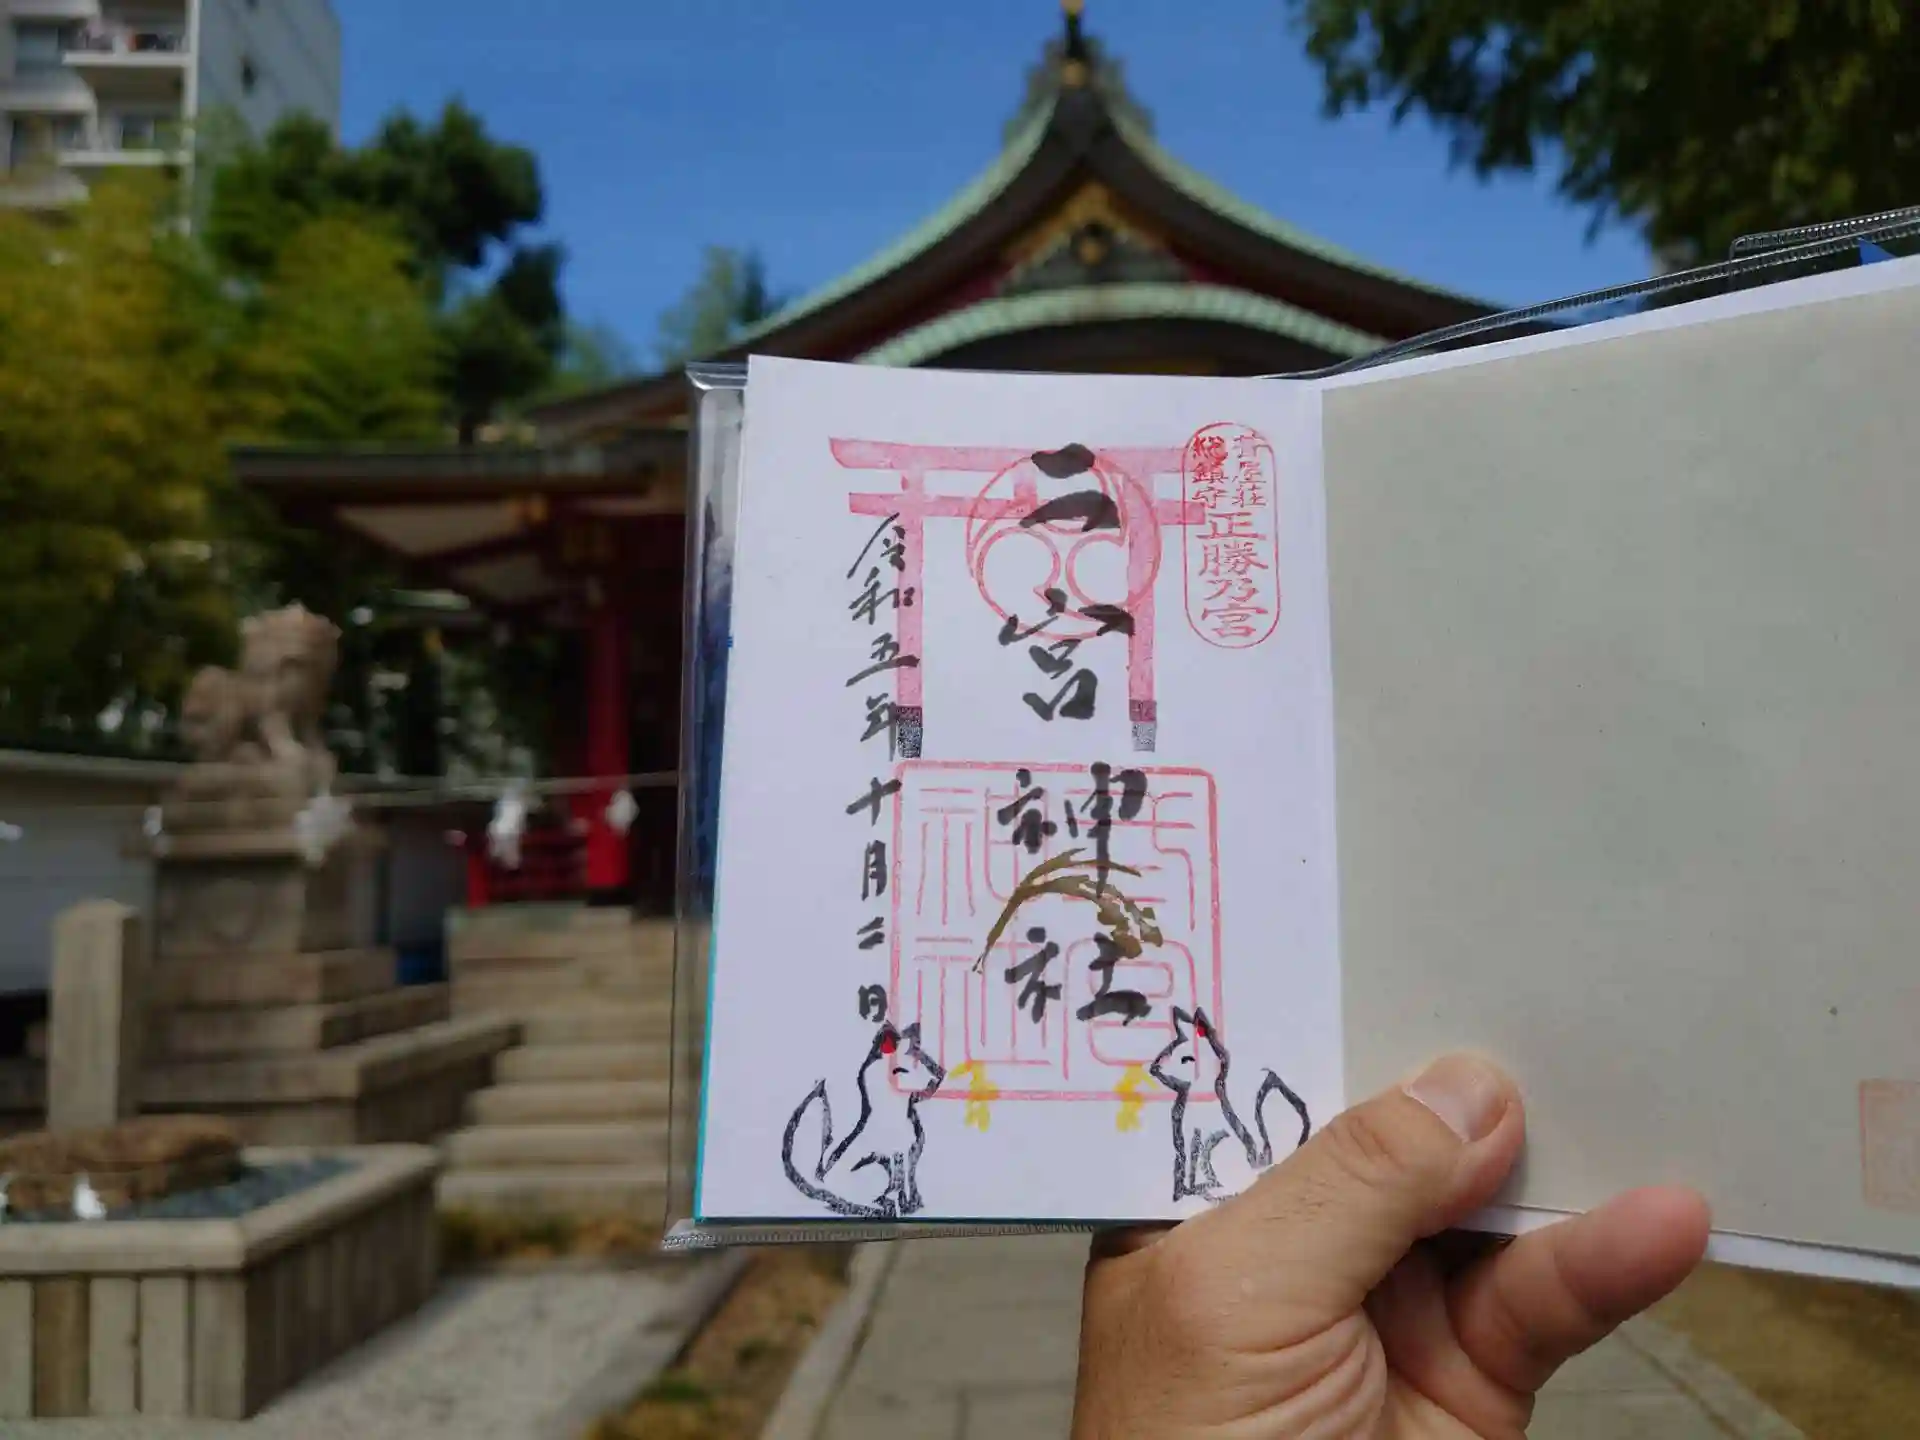 葺屋荘
総鎮守
正勝乃宮
二宮神社
宮
神社
令和五年十月二日